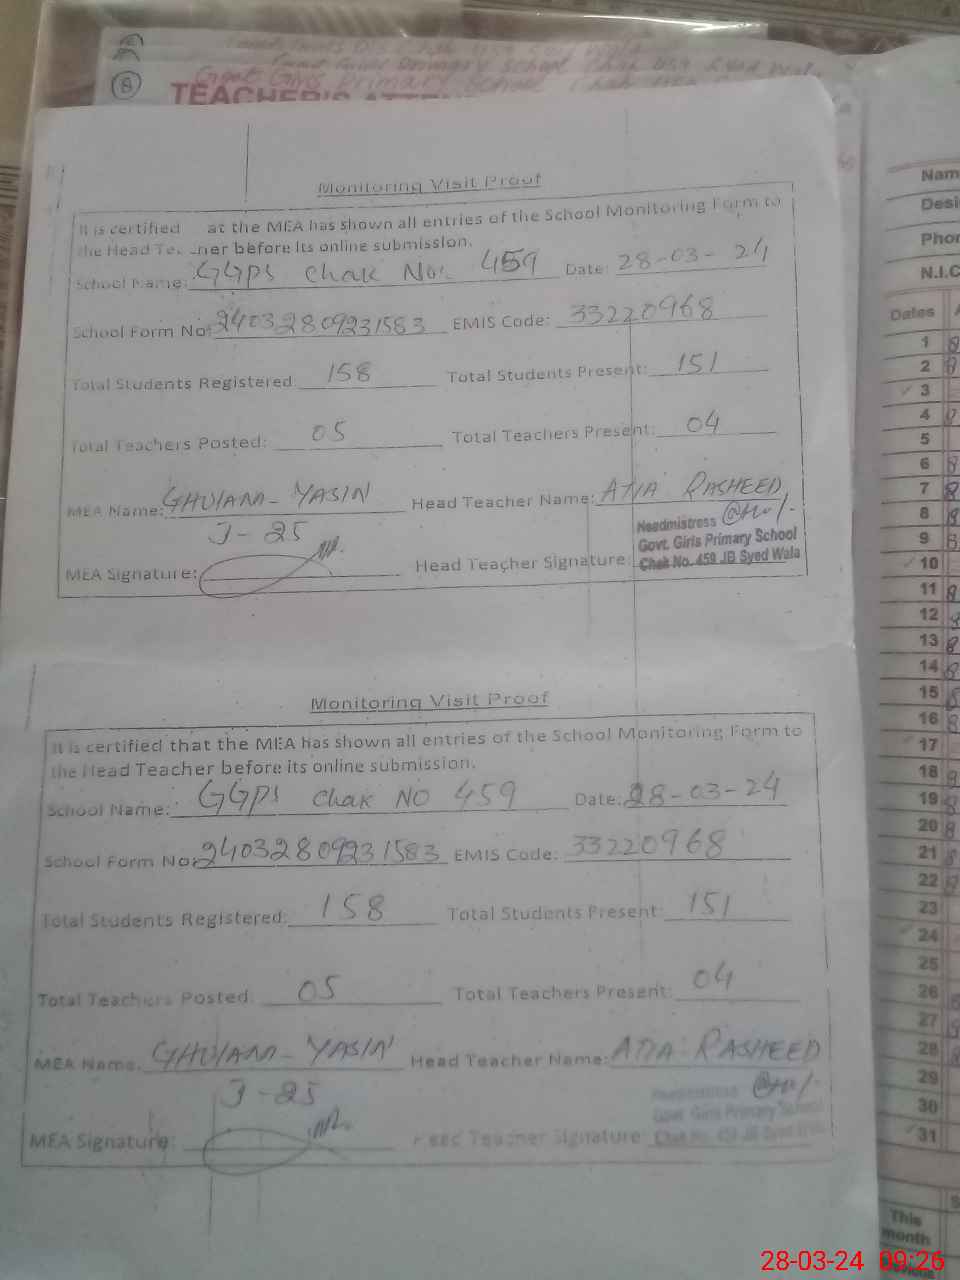 8
Govt Girls Primary School Chak 459 Syed
TEACHER'S
Monitoring Visit Proof
It is certified at the MEA has shown all entries of the School Monitoring Form to
the Head Te ner before its online submission.
School Name: GGPS Chak No: 459 Date: 28-03-24
School Form No: 24032809231583 EMIS Code: 33220968
Total Students Registered 158 Total Students Present: 151
Total Teachers Posted: 05 Total Teachers Present: 04
MEA Name: GHULAM-YASIN Head Teacher Name: ATIA RASHEED
J-25
Headmistress
Govt. Girls Primary School
MEA Signature: Head Teacher Signature: Chak No. 459 JB Syed Wala
Monitoring Visit Proof
It is certified that the MEA has shown all entries of the School Monitoring Form to
the Head Teacher before its online submission.
School Name: GGPS Chak NO 459 Date: 28-03-24
School Form No: 24032809231583 EMIS Code: 33220968
Total Students Registered: 158 Total Students Present: 151
Total Teachers Posted: 05 Total Teachers Present: 04
MEA Name: GHULAM-YASIN Head Teacher Name: ATIA RASHEED
J-25
Headmistress
Govt. Girls Primary School
MEA Signature: Head Teacher Signature: Chak No. 459 JB Syed Wala
Nam
Desi
Phor
N.I.C
Dates
1
2
3
4
5
6
7
8
9
10
11
12
13
14
15
16
17
18
19
20
21
22
23
24
25
26
27
28
29
30
31
This
month
28-03-24 09:26